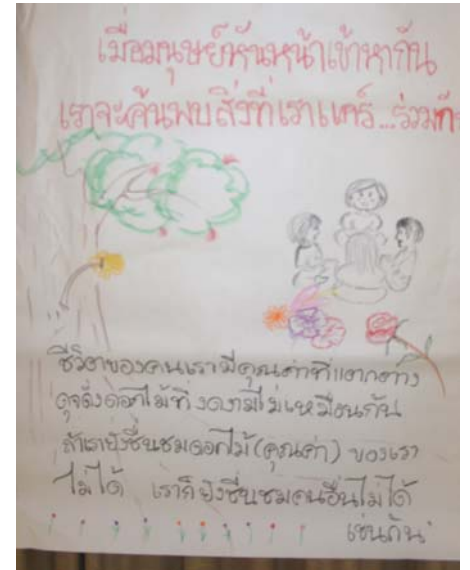 เมื่อมนุษย์หันหน้าเข้าหากัน
เราจะค้นพบสิ่งที่เราแคร์...ร่วมกัน
ชีวิตของคนเรามีคุณค่าที่แตกต่าง
ดุจดั่งดอกไม้ที่งดงามไม่เหมือนกัน
ถ้าเรายังชื่นชมดอกไม้(คุณค่า) ของเรา
ไม่ได้ เราก็ยังชื่นชมคนอื่นไม่ได้
เช่นกัน